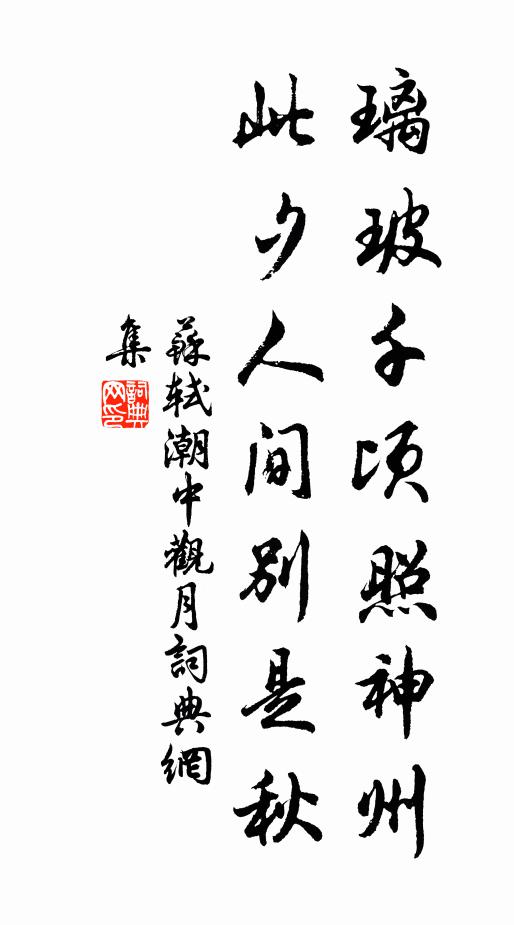 璃玻千頃照神州
此夕人間別是秋
蘇軾潮中觀月詞典網
集
詞典
网印